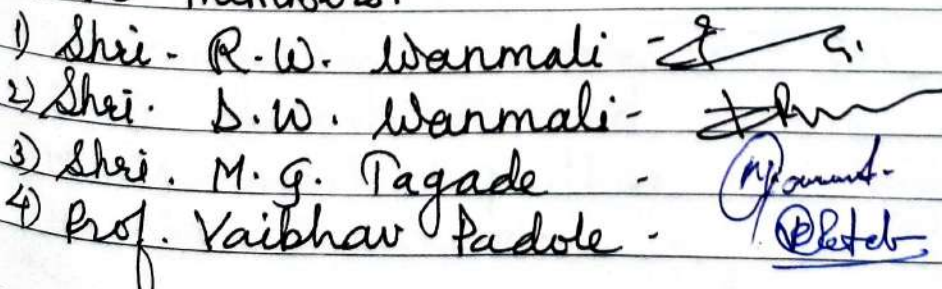 1) Shri - R.W. Wanmali -
2) Shri. D.W. Wanmali -
3) Shri. M.G. Tagade -
4) Prof. Vaibhav Padole -